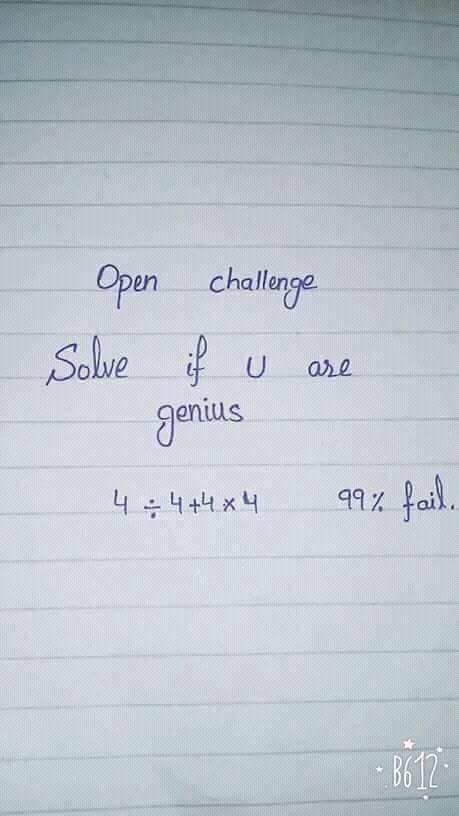 Open challenge
Solve if U are
genius
4 ÷ 4+4 × 4 99% fail.
B612